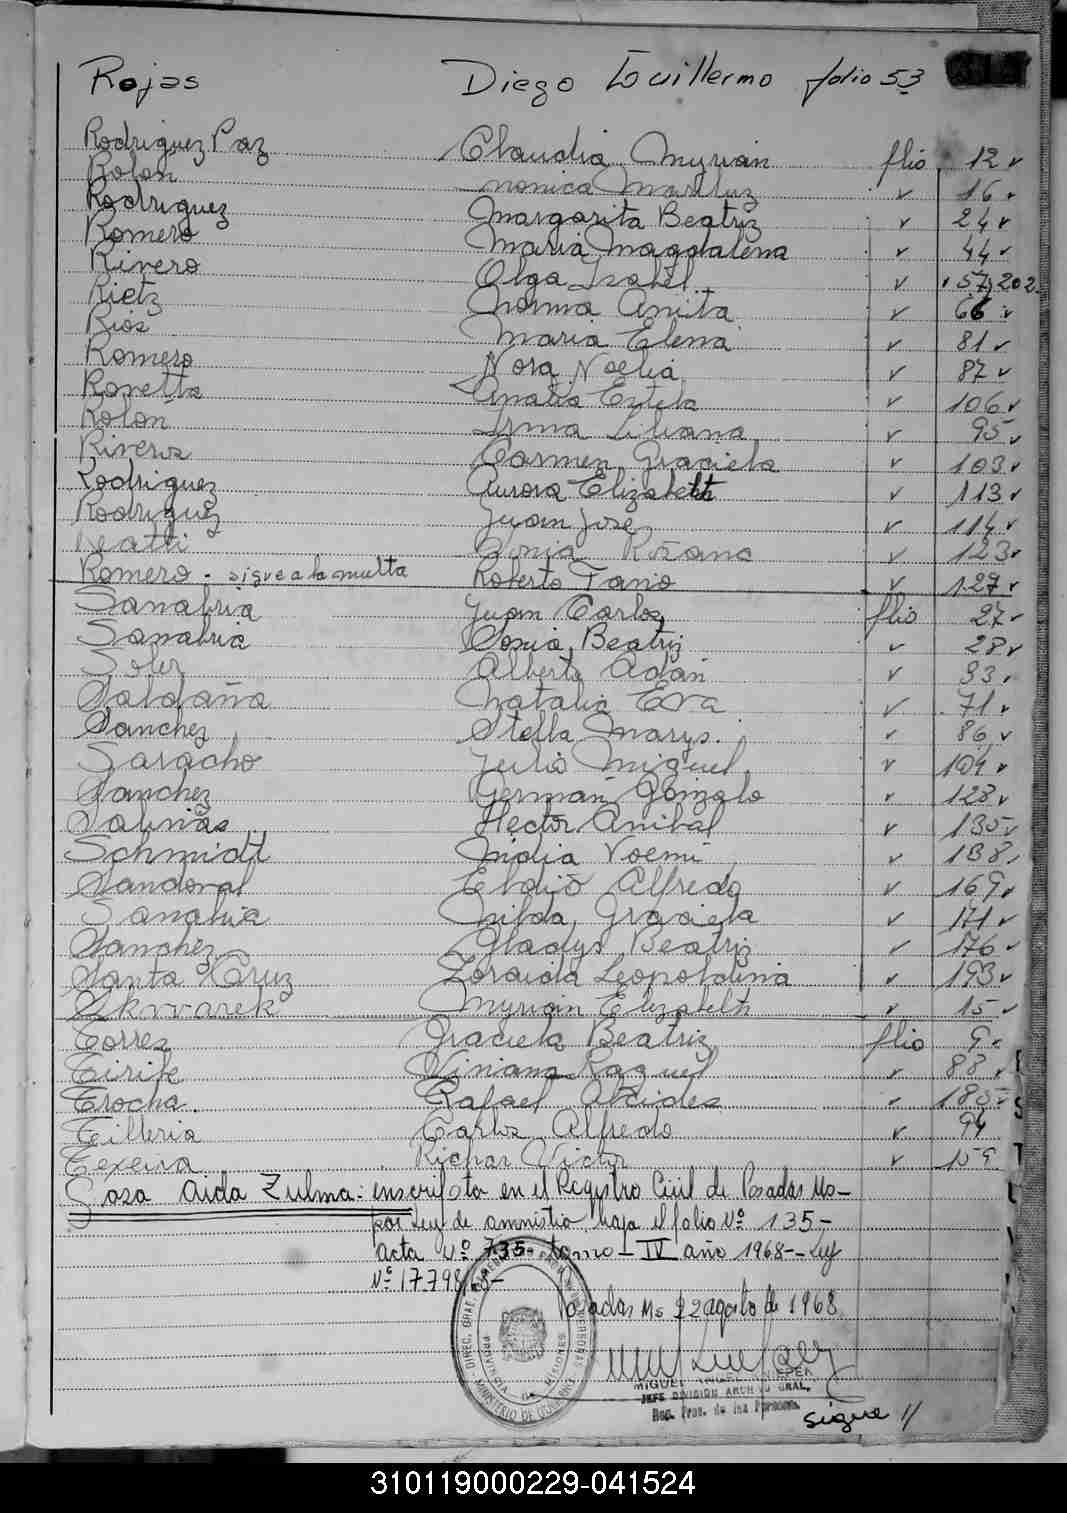 Rojas Diego Guillermo folio 53
Rodriguez Paz Claudia Myrian flio 12 v
Rolon Monica Mariluz v 16 v
Rodriguez Margarita Beatriz v 24 v
Romero Maria Magdalena v 44 v
Rivero Olga Isabel v 57, 202
Rietz Norma Anita v 66 v
Rios Maria Elena v 81 v
Romero Nora Noelia v 87 v
Ronetta Analia Estela v 106 v
Rolon Irma Liliana v 95 v
Riveros Carmen Graciela v 103 v
Rodriguez Aurora Elizabeth v 113 v
Rodriguez Juan Jose v 114 v
Reatti Sonia Rosana v 123 v
Romero - sigue a la vuelta Roberto Fano v 127 v
Sanabria Juan Carlos flio 27 v
Sanabria Sonia Beatriz v 28 v
Soler Alberto Adan v 33 v
Saldaña Natalia Eva v 71 v
Sanchez Stella Marys. v 86 v
Saracho Julio Miguel v 104 v
Sanchez German Gonzalo v 128 v
Salinas Hector Anibal v 135 v
Schmidt Nidia Noemi v 138
Sandoval Eladio Alfredo v 169 v
Sanabria Nilda Graciela v 171 v
Sanchez Gladys Beatriz v 176 v
Santa Cruz Zoraida Leopoldina v 193 v
Skvvarek Myrian Elizabeth v 15 v
Torres Graciela Beatriz flio 9
Tirife Viviana Raquel v 88 v
Trocha. Rafael Alcides v 185
Tilleria Carlos Alfredo v 94
Texeira Richar Victor v 159
Sosa Aida Zulma: inscripta en el Registro Civil de Posadas Ms-
por Ley de amnistia bajo el folio Nº 135-
acta Nº 735- tomo - IV año 1968-- Ley
Nº 17.798/68-
Posadas Ms 22 agosto de 1968
DIREC. GRAL. PERSONAS
PROVINCIA DE MISIONES
MINISTERIO DE GOBIERNO
MIGUEL ANGEL
JEFE DIVISION ARCHIVO GRAL.
Reg. Prov. de las Personas
Sigue //
310119000229-041524